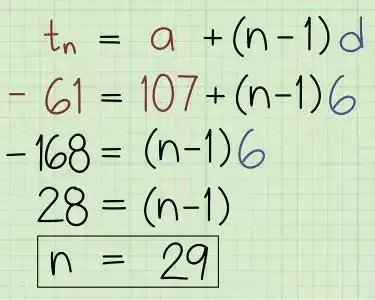 tₙ = a + (n - 1) d
- 61 = 107 + (n - 1) 6
- 168 = (n - 1) 6
28 = (n - 1)
n = 29